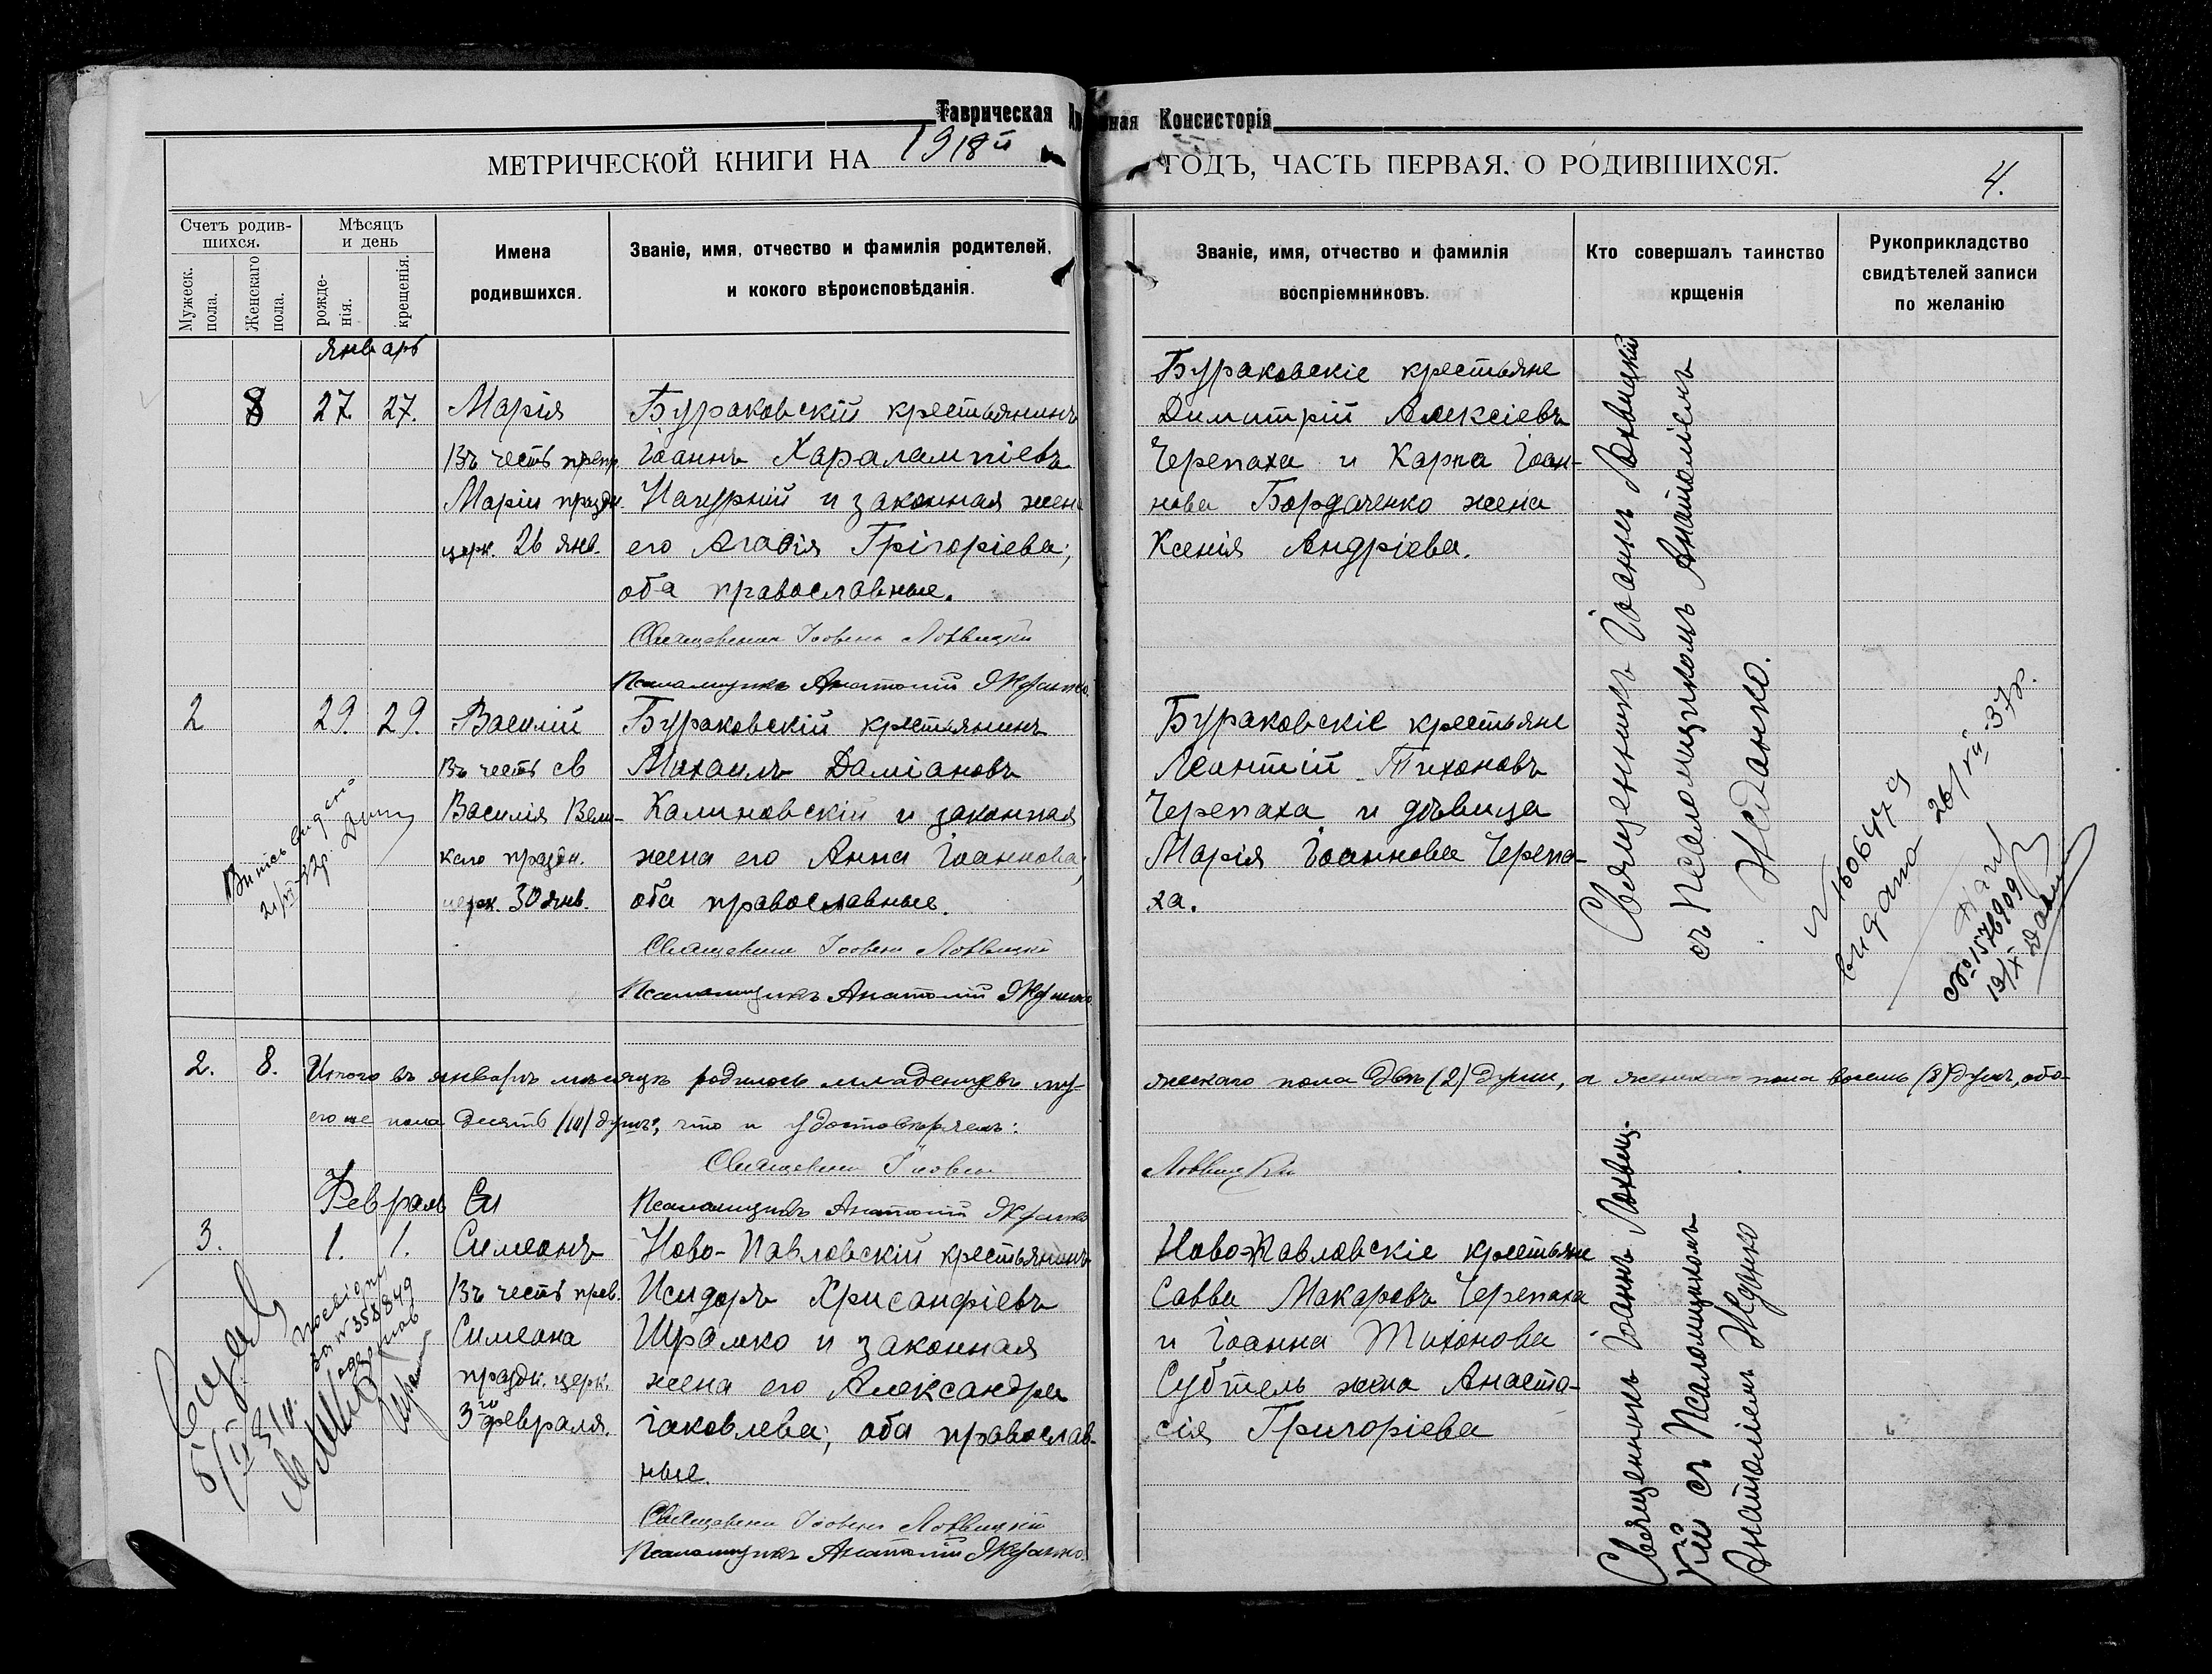 Таврическая Духовная Консисторія
МЕТРИЧЕСКОЙ КНИГИ НА 1918й ГОДЪ, ЧАСТЬ ПЕРВАЯ. О РОДИВШИХСЯ.
4.
Счетъ родив-
шихся.
Мужеск.
пола.
Женскаго
пола.
Мѣсяцъ
и день
рожде-
нія.
крещенія.
Имена
родившихся.
Званіе, имя, отчество и фамилія родителей,
и кокого вѣроисповѣданія.
Званіе, имя, отчество и фамилія
воспріемниковъ.
Кто совершалъ таинство
крщенія
Рукоприкладство
свидѣтелей записи
по желанію
Январь
8
27.
27.
Марія
Въ честь преп.
Маріи праздн.
церк. 26 янв.
Бураковскій крестьянинъ
Іоаннъ Харалампіевъ
и законная жена
его Агафія Грігоріева;
оба православные.
Священникъ Іоаннъ Лохвицкій
Псаломщикъ Анатолій Жданко
Бураковскіе крестьяне
Димитрій Алексіевъ
Черепаха и Карпа Іоан-
нова Бордаченко жена
Ксенія Андріева.
Священникъ Іоаннъ Лохвицкій
съ Псаломщикомъ Анатоліемъ
Жданко.
2
29.
29.
Василій
Въ честь св
Василія Вели-
каго праздн.
церк. 30 янв.
Бураковскій крестьянинъ
Михаилъ Даміановъ
Калиновскій и законная
жена его Анна Іоаннова;
оба православные.
Священникъ Іоаннъ Лохвицкій
Псаломщикъ Анатолій Жданко
Бураковскіе крестьяне
Леонтій Тихоновъ
Черепаха и дѣвица
Марія Іоаннова Черепа-
ха.
видана 26/VII 37р.
№ 1576909
19/X
2.
8.
Итого въ январѣ мѣсяцѣ родилось младенцевъ му-
жескаго пола двѣ (2) души, а женскаго пола восемь (8) душъ, обо-
его же пола десять (10) душъ; что и удостовѣряемъ:
Священникъ Іоаннъ Лохвицкій
Псаломщикъ Анатолій Жданко
Февраль
Си
3.
1.
1.
Симеонъ
Въ честь прав.
Симеона
праздн. церк.
3го февраля.
Ново-Павловскій крестьянинъ
Исидоръ Хрисанфіевъ
Шрамко и законная
жена его Александра
Іаковлева; оба православ-
ные.
Священникъ Іоаннъ Лохвицкій
Псаломщикъ Анатолій Жданко.
Ново-Павловскіе крестьяне
Савва Макаровъ Черепаха
и Іоанна Тихонова
Субтель жена Анаста-
сія Григоріева
Священникъ Іоаннъ Лохвиц-
кій съ Псаломщикомъ
Анатоліемъ Жданко